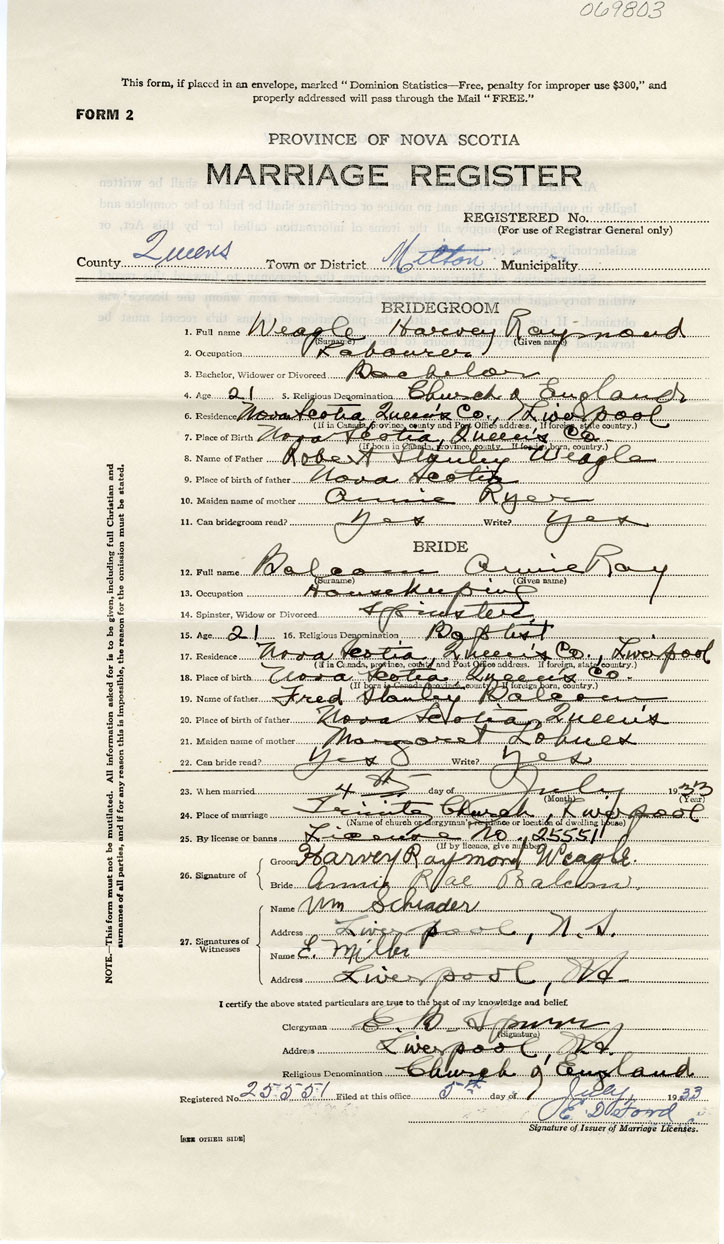 069803
This form, if placed in an envelope, marked "Dominion Statistics—Free, penalty for improper use $300," and
properly addressed will pass through the Mail "FREE."
FORM 2
PROVINCE OF NOVA SCOTIA
MARRIAGE REGISTER
REGISTERED No.
(For use of Registrar General only)
County Queens Town or District Milton Municipality
BRIDEGROOM
1. Full name Weagle Harvey Raymond
(Surname) (Given name)
2. Occupation Labourer
3. Bachelor, Widower or Divorced Bachelor
4. Age 21 5. Religious Denomination Church of England
6. Residence Nova Scotia Queen's Co., Liverpool
(If in Canada, province, county and Post Office address. If foreign, state country.)
7. Place of Birth Nova Scotia, Queen's Co.
(If born in Canada, province, county. If foreign born, country.)
8. Name of Father Robert Stanley Weagle
9. Place of birth of father Nova Scotia
10. Maiden name of mother Annie Ryer
11. Can bridegroom read? Yes Write? Yes
BRIDE
12. Full name Balcom Annie Ray
(Surname) (Given name)
13. Occupation Housekeeping
14. Spinster, Widow or Divorced Spinster
15. Age 21 16. Religious Denomination Baptist
17. Residence Nova Scotia, Queen's Co., Liverpool
(If in Canada, province, county and Post Office address. If foreign, state country.)
18. Place of birth Nova Scotia Queen's Co.
(If born in Canada province, county. If foreign born, country.)
19. Name of father Fred Stanley Balcom
20. Place of birth of father Nova Scotia, Queen's
21. Maiden name of mother Margaret Lohnes
22. Can bride read? Yes Write? Yes
23. When married 4th day of July 1933
(Month) (Year)
24. Place of marriage Trinity Church, Liverpool
(Name of church or clergyman's residence or location of dwelling house)
25. By license or banns License No. 25551
(If by licence, give number)
26. Signature of Groom Harvey Raymond Weagle.
Bride Annie Rae Balcom.
27. Signatures of Witnesses
Name Wm Schrader
Address Liverpool, N.S.
Name E. Miller
Address Liverpool, NS
I certify the above stated particulars are true to the best of my knowledge and belief.
Clergyman E. B. Spurr
(Signature)
Address Liverpool, N.S.
Religious Denomination Church of England
Registered No. 25551 Filed at this office 5th day of July, 1933
E. D. Ford
Signature of Issuer of Marriage Licenses.
[SEE OTHER SIDE]
NOTE.—This form must not be mutilated. All information asked for is to be given, including full Christian and
surnames of all parties, and if for any reason this is impossible, the reason for the omission must be stated.